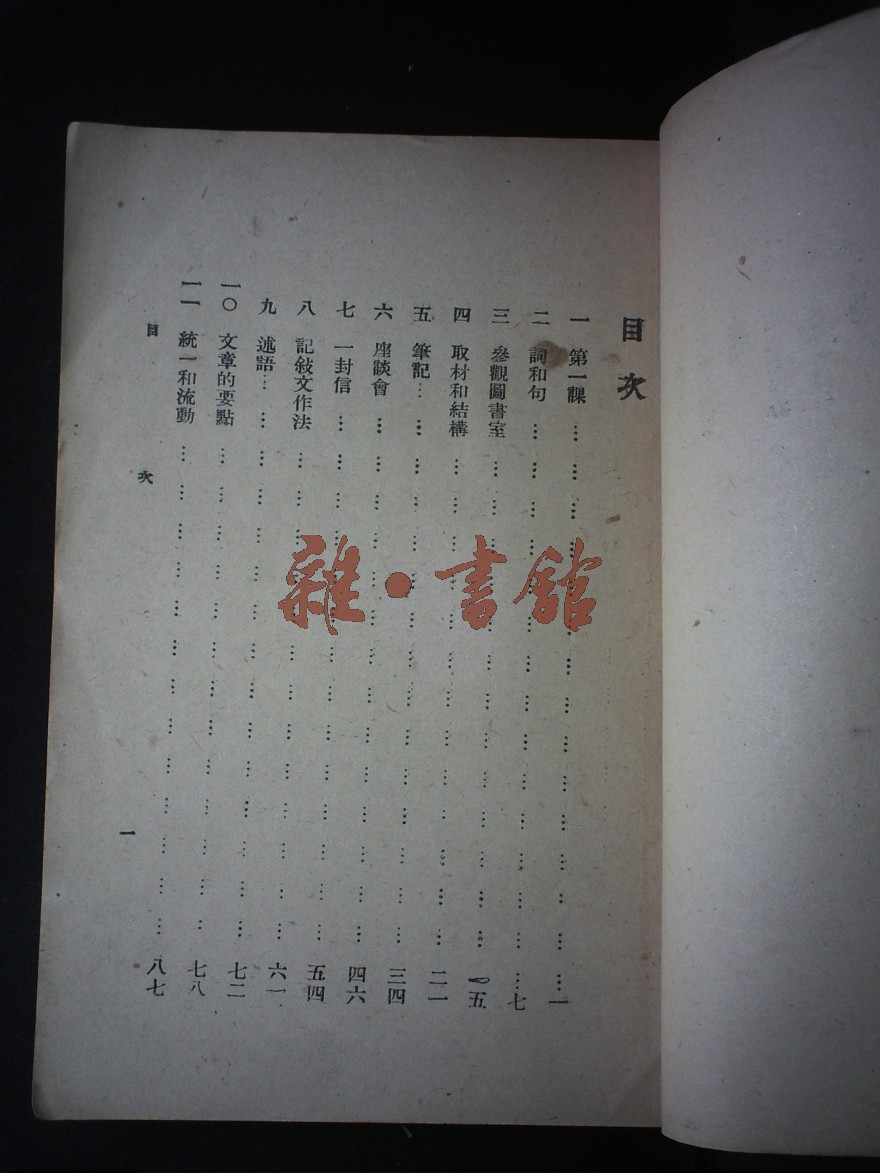 目次
一 第一課 …………………………………… 一
二 詞和句 …………………………………… 七
三 參觀圖書室 …………………………………… 一五
四 取材和結構 …………………………………… 二一
五 筆記 …………………………………… 三四
六 座談會 …………………………………… 四六
七 一封信 …………………………………… 五四
八 記敍文作法 …………………………………… 六一
九 述語 …………………………………… 七二
一〇 文章的要點 …………………………………… 七八
一一 統一和流動 …………………………………… 八七
目 次 一
雜·書館